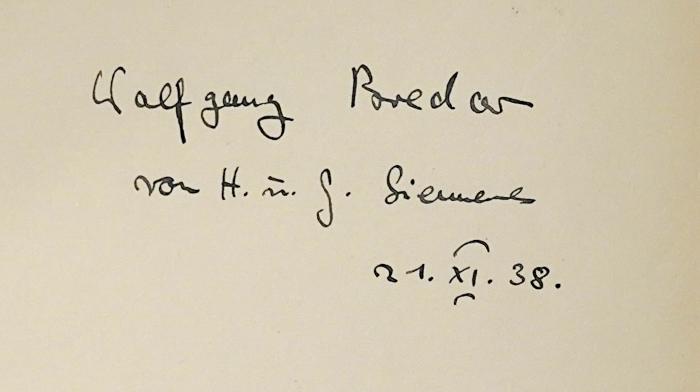 Wolfgang Bredow
von H. u. G. Siemens
21. XI. 38.